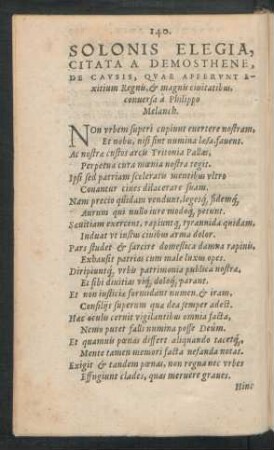 140.
SOLONIS ELEGIA,
CITATA A DEMOSTHENE,
DE CAVSIS, QVAE AFFERVNT E-
xitium Regnis, & magnis ciuitatibus
conuersa à Philippo
Melanch.
NOn vrbem superi cupiunt euertere nostram,
Et nobis, nisi sint numina læsa, fauent.
At nostra custos arcis Tritonia Pallas,
Perpetua cura mœnia nostra tegit.
Ipsi sed patriam sceleratis mentibus vltro
Conantur ciues dilacerare suam.
Nam precio quidam vendunt legesq́;, fidemq́;,
Aurum qui nullo iure modoq́; petunt.
Sæuitiam exercent, rapiuntq́;, tyrannida quidam,
Induat vt iustus ciuibus arma dolor.
Pars studet & sarcire domestica damna rapinis,
Exhausit patrias cum male luxus opes.
Diripiuntq́;, vrbis patrimonia publica nostræ,
Et sibi diuitias viq́;, doloq́;, parant.
Et non iusticiæ formidant numen, & iram,
Consilijs superum quæ dea semper adest.
Hæc oculis cernit vigilantibus omnia facta,
Nemo putet falli numina posse Deûm.
Et quamuis pœnas differt aliquando tacetq́;,
Mente tamen memori facta nefanda notat.
Exigit & tandem pœnas, non regna nec vrbes
Effugiunt clades, quas meruere graues.
Hinc